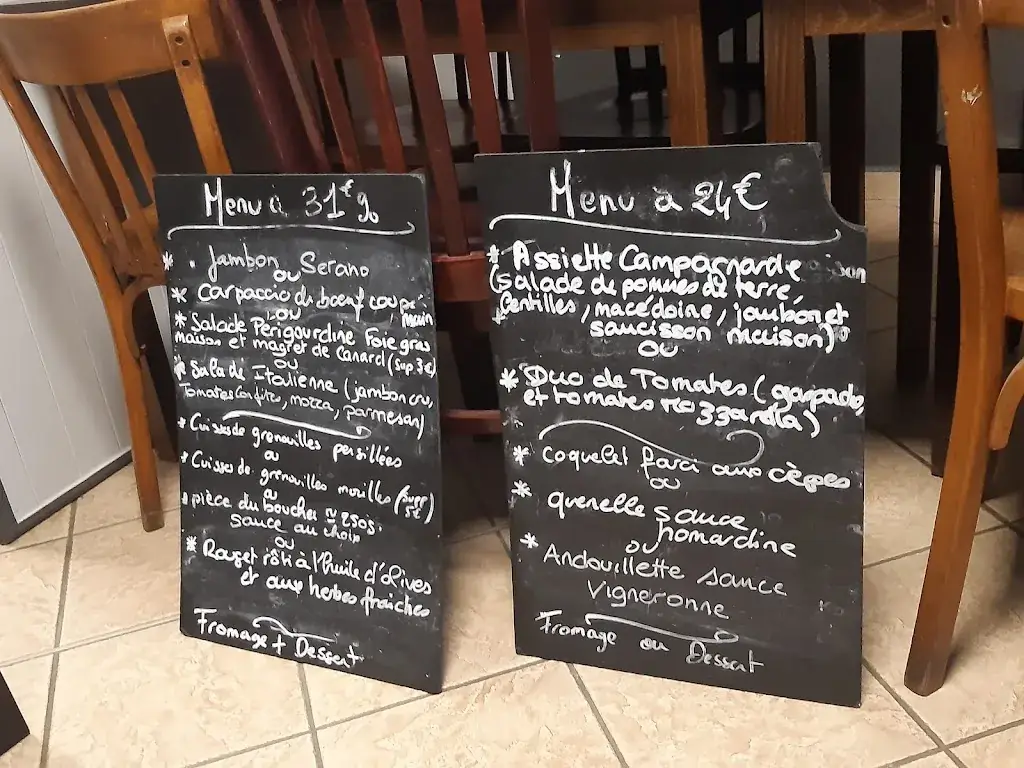 Menu à 31€
* Jambon Serano
ou
* Carpaccio de bœuf coupé
main
ou
* Salade Périgourdine Foie gras
maison et magret de Canard (sup 3€)
ou
* Salade Italienne (jambon cru,
Tomates confites, mozza, parmesan)
* Cuisses de grenouilles persillées
ou
* Cuisses de grenouilles
ou
* pièce du boucher 250g
sauce au choix
ou
* Rouget rôti à l'huile d'olives
et aux herbes fraiches
Fromage + Dessert
Menu à 24€
* Assiette Campagnarde
(salade de pommes de terre,
lentilles, macédoine, jambon et
saucisson maison)
ou
* Duo de Tomates (gaspacho,
et tomates)
* Coquelet farci aux cèpes
ou
* quenelle sauce
homardine
ou
* Andouillette sauce
Vigneronne
Fromage ou Dessert